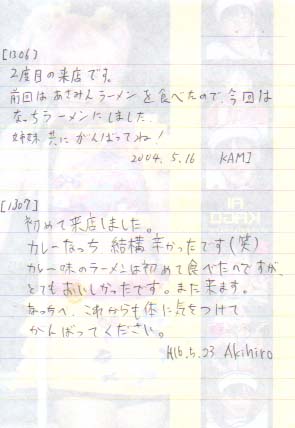 [1306]
2度目の来店です。
前回はあさみんラーメンを食べたので、今回は
なっちラーメンにしました。
姉妹共にがんばってね！
2004.5.16 KAMI
[1307]
初めて来店しました。
カレーなっち 結構辛かったです(笑)
カレー味のラーメンは初めて食べたのですが、
とてもおいしかったです。また来ます。
なっちへ、これからも体に気をつけて
がんばってください。
H16.5.23 Akihiro